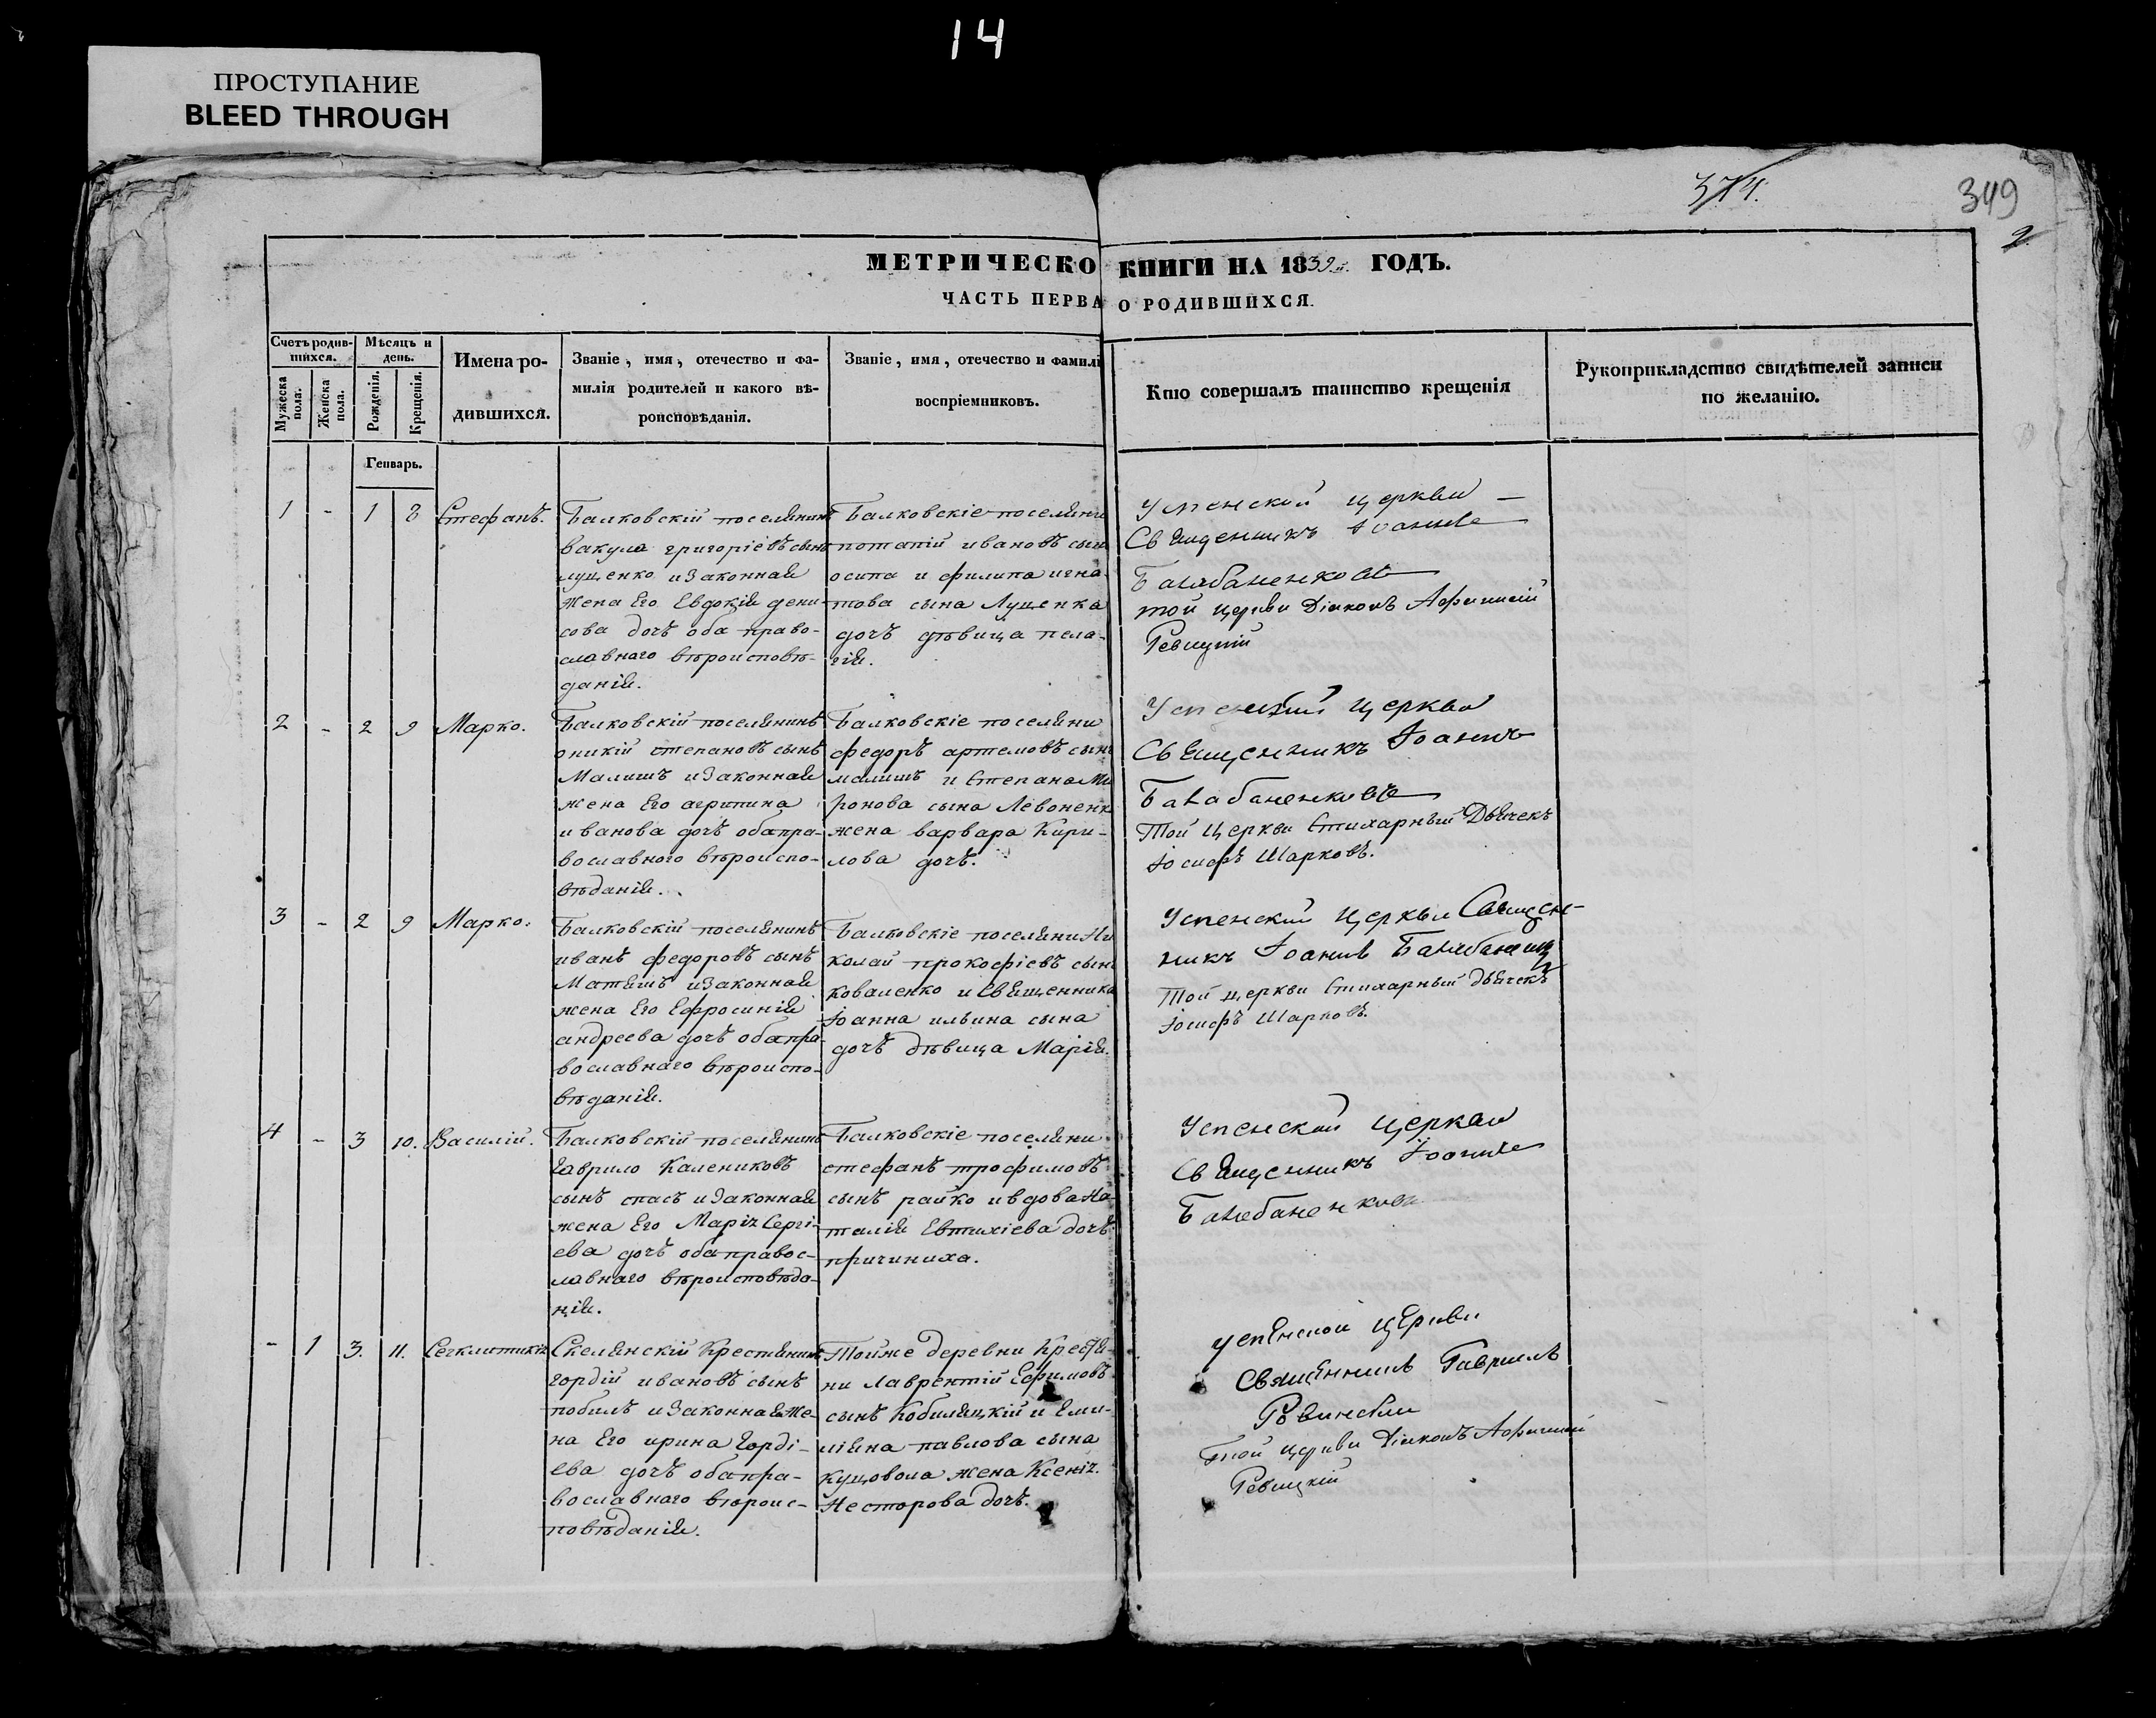 14
ПРОСТУПАНИЕ
BLEED THROUGH
374.
349
2
МЕТРИЧЕСКО КНИГИ НА 1839й ГОДЪ.
ЧАСТЬ ПЕРВА О РОДИВШИХСЯ.
Счетъ родив-
шихся.
Мужеска пола.
Женска пола.
Мѣсяцъ и
день.
Рожденія.
Крещенія.
Имена ро-
дившихся.
Званіе, имя, отечество и фа-
милія родителей и какого вѣ-
роисповѣданія.
Званіе, имя, отечество и фамилі
воспріемниковъ.
Кто совершалъ таинство крещенія
Рукоприкладство свидѣтелей записи
по желанію.
Генварь.
1 - 1 8 Стефанъ.
Балковскій поселянинъ
вакула григоріевъ сынъ
луценко и законная
жена Его Евдокія дени-
сова дочь оба право-
славнаго вѣроисповѣ-
данія.
Балковскіе поселяни
потапій ивановъ сынъ
осипа и филипа игна-
това сына Луценка
дочь дѣвица пела-
гія.
Успенской церкви
Священникъ Іоаннъ
Балабаненковъ
той церкви Діяконъ Афанасій
Ревицкій
2 - 2 9 Марко.
Балковскій поселянинъ
оникій степановъ сынъ
Малишъ и законная
жена Его агрипина
иванова дочь оба пра-
вославнаго вѣроиспо-
вѣданія.
Балковскіе поселяни
федоръ артемовъ сынъ
малишъ и Степана Ми
ронова сына Левоненк
жена варвара Кири-
лова дочь.
Успенской церкви
Священникъ Іоаннъ
Балабаненковъ
Той Церкви Стихарный Дьячекъ
Іосифъ Шарковъ.
3 - 2 9 Марко.
Балковскій поселянинъ
иванъ федоровъ сынъ
Матяшъ и законная
жена Его Ефросинія
андреева дочь оба пра-
вославнаго вѣроиспо-
вѣданія.
Балковскіе поселяни Ни
колай прокофіевъ сынъ
коваленко и Священника
Іоанна ильина сына
дочь дѣвица Марія.
Успенской Церкви Священ-
никъ Іоаннъ
Той церкви Стихарный Дьячекъ
Іосифъ Шарковъ.
4 - 3 10. Василій.
Балковскій поселянинъ
Гаврило Калениковъ
сынъ спасъ и законная
жена Его Марія Сергі-
ева дочь оба правос-
лавнаго вѣроисповѣда-
нія.
Балковскіе поселяни
стефанъ трофимовъ
сынъ райко и вдова На-
талія Евтихіева дочь
причиниха.
Успенской Церкви
Священникъ Іоаннъ
Балабаненковъ
- 1 3. 11.
Скелянскій Крестянинъ
гордій ивановъ сынъ
побиль и законная Же-
на Его ирина Горді-
ева дочь оба пра-
вославнаго вѣроис-
повѣданія.
Тойже деревни Крестя-
ни Лаврентій Ефимовъ
сынъ Кобиляцкій и Еми-
ліяна павлова сына
куцовола жена Ксенія
Несторова дочь.
Успенской Церкви
Священникъ Гавріилъ
Той Церкви Діяконъ Афанасій
Ревицкій